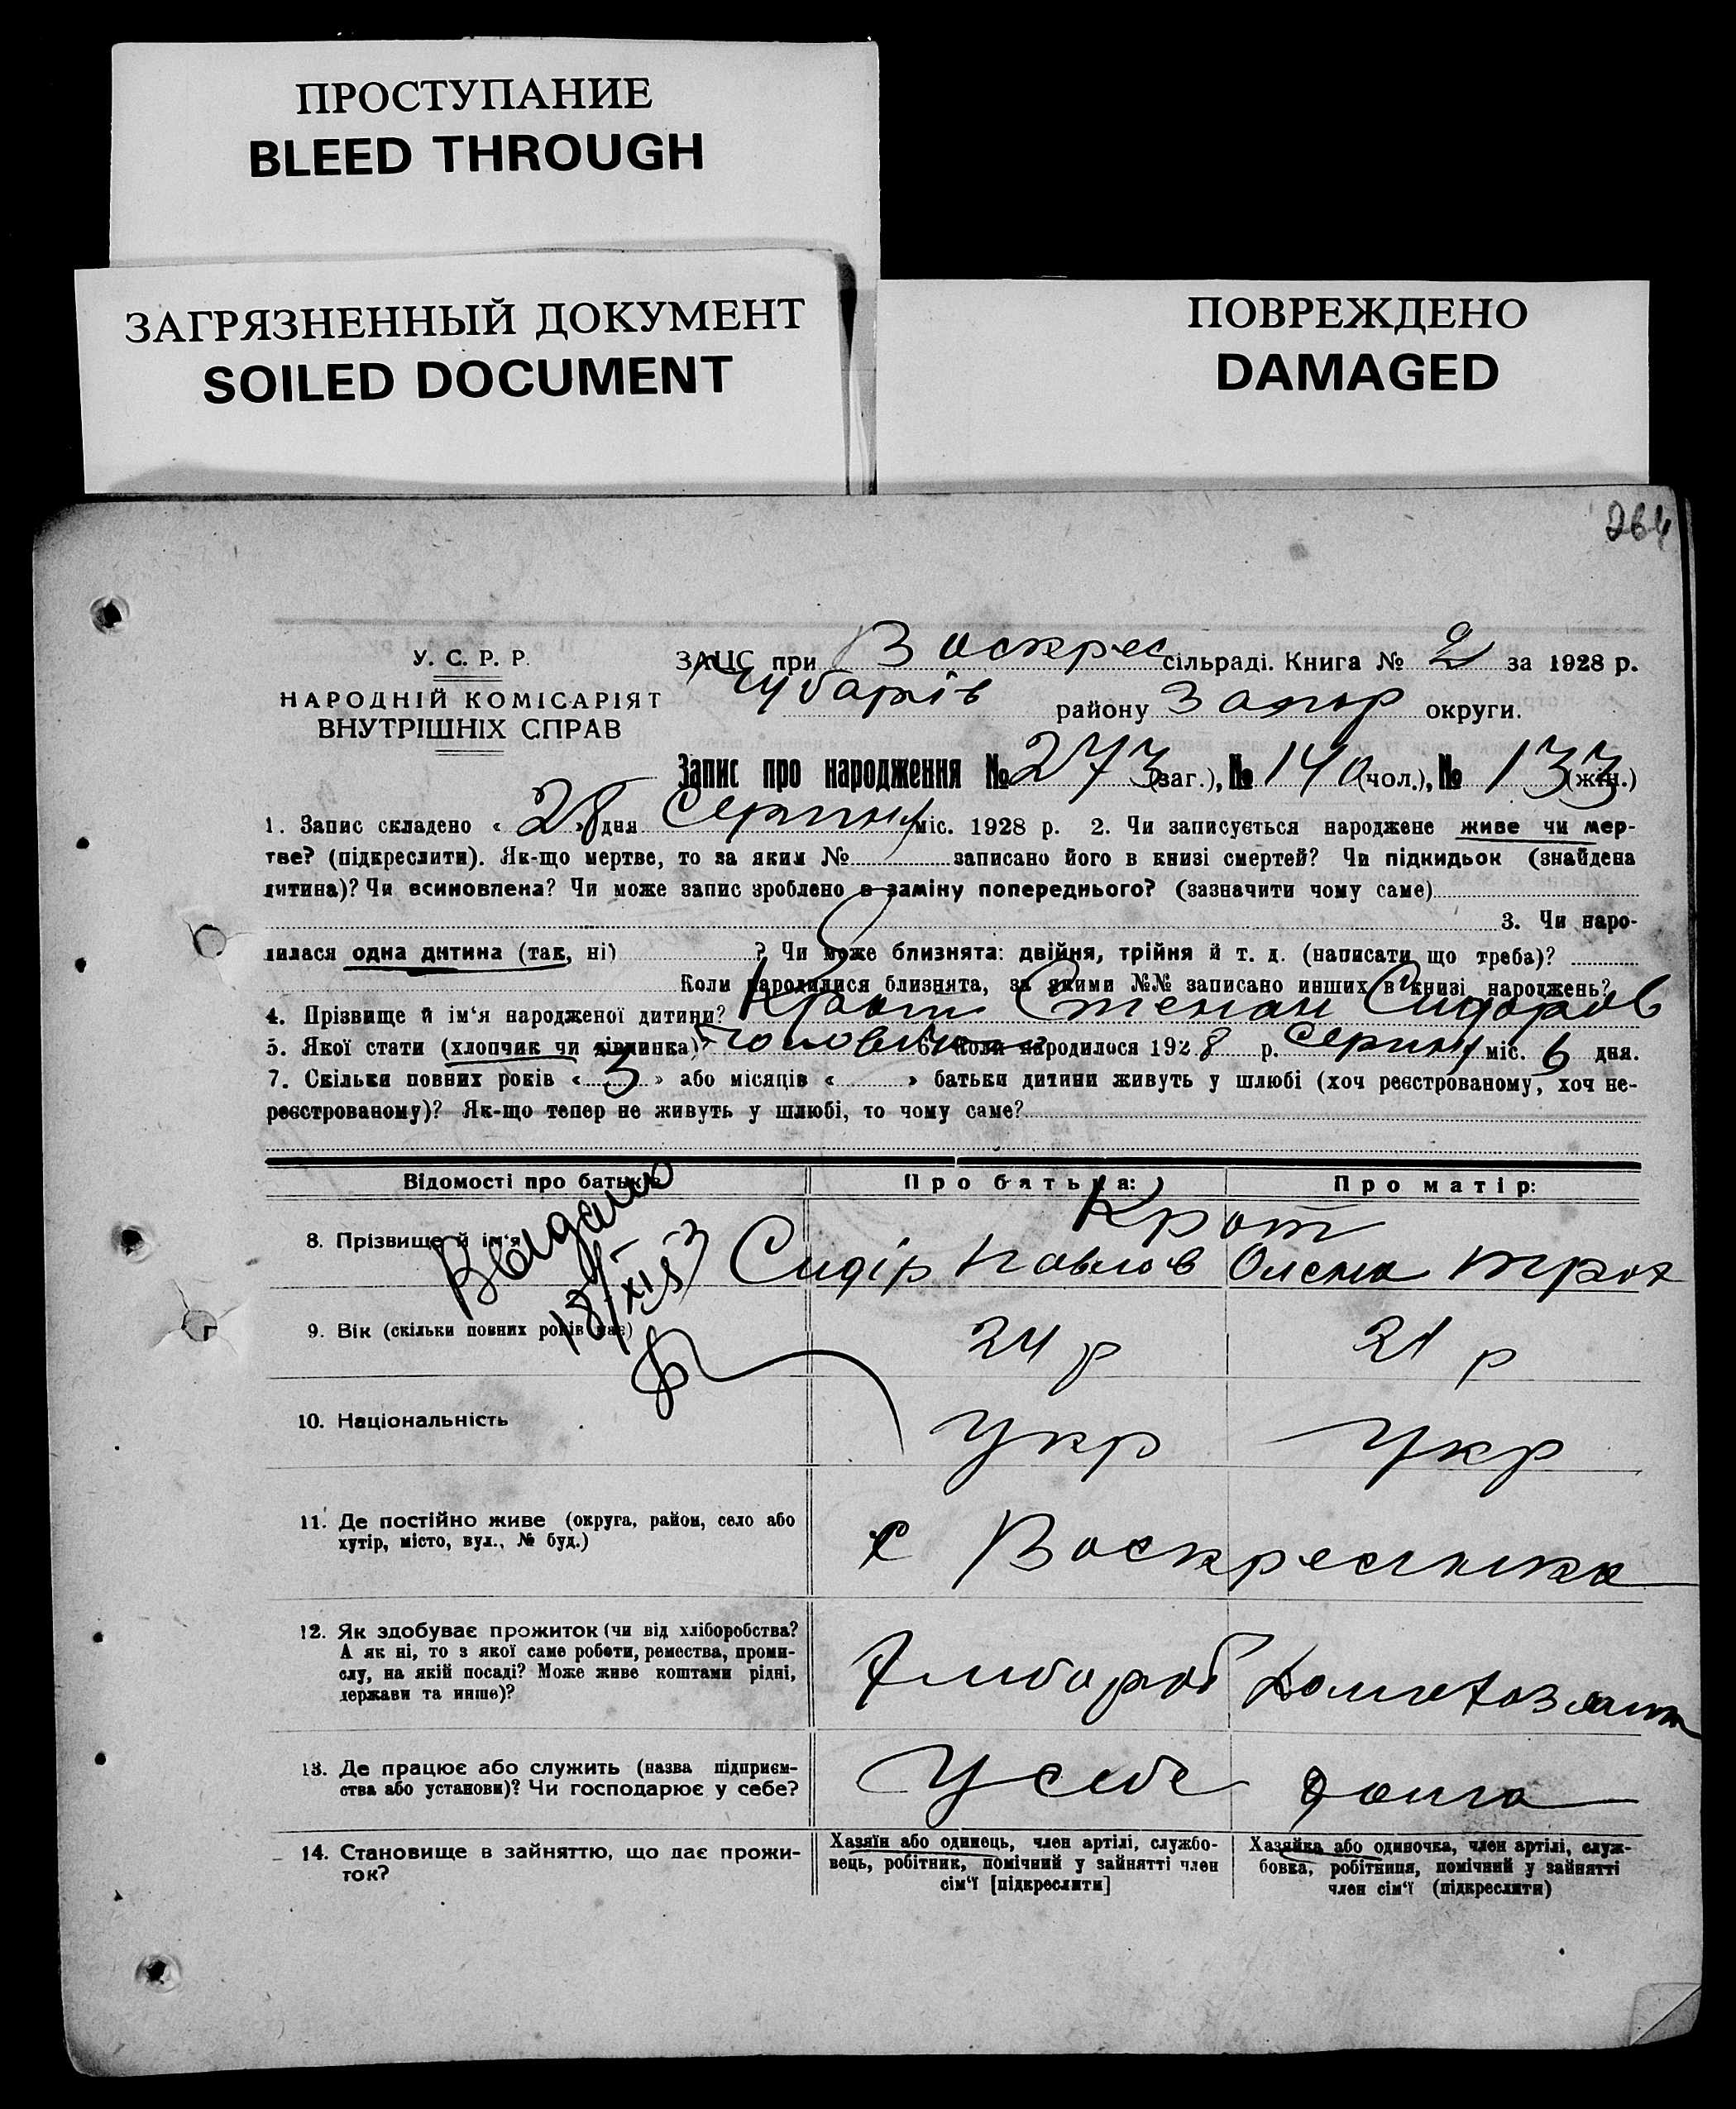 ПРОСТУПАНИЕ
BLEED THROUGH
ЗАГРЯЗНЕННЫЙ ДОКУМЕНТ
SOILED DOCUMENT
ПОВРЕЖДЕНО
DAMAGED
264
У. С. Р. Р.
НАРОДНІЙ КОМІСАРІЯТ
ВНУТРІШНІХ СПРАВ
ЗАЦС при Воскрес сільраді. Книга № 2 за 1928 р.
Чубарів району Запор округи.
Запис про народження № 273 (заг.), № 140 (чол.), № 133 (жін.)
1. Запис складено « 28 » дня Серпня міс. 1928 р. 2. Чи записується народжене живе чи мер-
тве? (підкреслити). Як-що мертве, то за яким № записано його в книзі смертей? Чи підкидьок (знайдена
дитина)? Чи всиновлена? Чи може запис зроблено в заміну попереднього? (зазначити чому саме)
3. Чи наро-
дилася одна дитина (так, ні) ? Чи може близнята: двійня, трійня й т. д. (написати що треба)?
Коли народилися близнята, за якими №№ записано инших в книзі народжень?
4. Прізвище й ім'я народженої дитини? Крот Степан Сидоров
5. Якої стати (хлопчик чи дівчинка)? Чоловіча 6. Коли народилося 1928 р. Серпня міс. 6 дня.
7. Скільки повних років « 3 » або місяців « » батьки дитини живуть у шлюбі (хоч реєстрованому, хоч не-
реєстрованому)? Як-що тепер не живуть у шлюбі, то чому саме?
Відомості про батьків
Про батька:
Про матір:
Видано
18/XI 53
8. Прізвище й ім'я
Крот
Сидір Павлов
Олена Троx
9. Вік (скільки повних років має)
24 р
21 р
10. Національність
Укр
Укр
11. Де постійно живе (округа, район, село або
хутір, місто, вул., № буд.)
с Воскресенка
12. Як здобуває прожиток (чи від хліборобства?
А як ні, то з якої саме роботи, ремества, проми-
слу, на якій посаді? Може живе коштами рідні,
держави та инше)?
Хлибороб
13. Де працює або служить (назва підприєм-
ства або установи)? Чи господарює у себе?
У себе
дома
14. Становище в зайняттю, що дає прожи-
ток?
Хазяїн або одинець, член артілі, службо-
вець, робітник, помічний у зайнятті член
сім'ї [підкреслити]
Хазяйка або одиночка, член артілі, служ-
бовка, робітниця, помічний у зайнятті
член сім'ї (підкреслити)